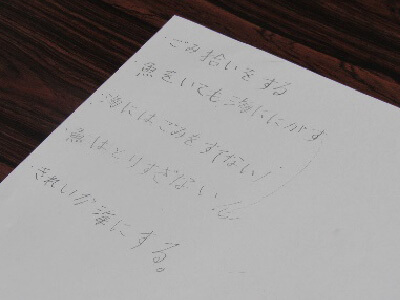 ・ごみ拾いをする
・魚をいても海ににがす
・海にはごみをすてない!
・魚はとりすぎない
・きれいな海にする。